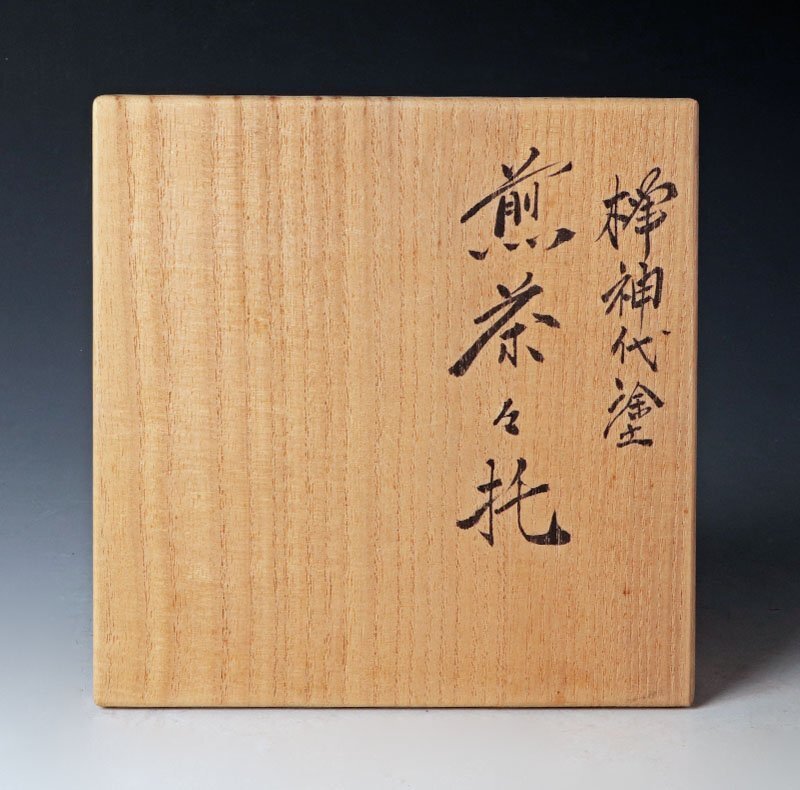 欅神代塗
煎茶々托